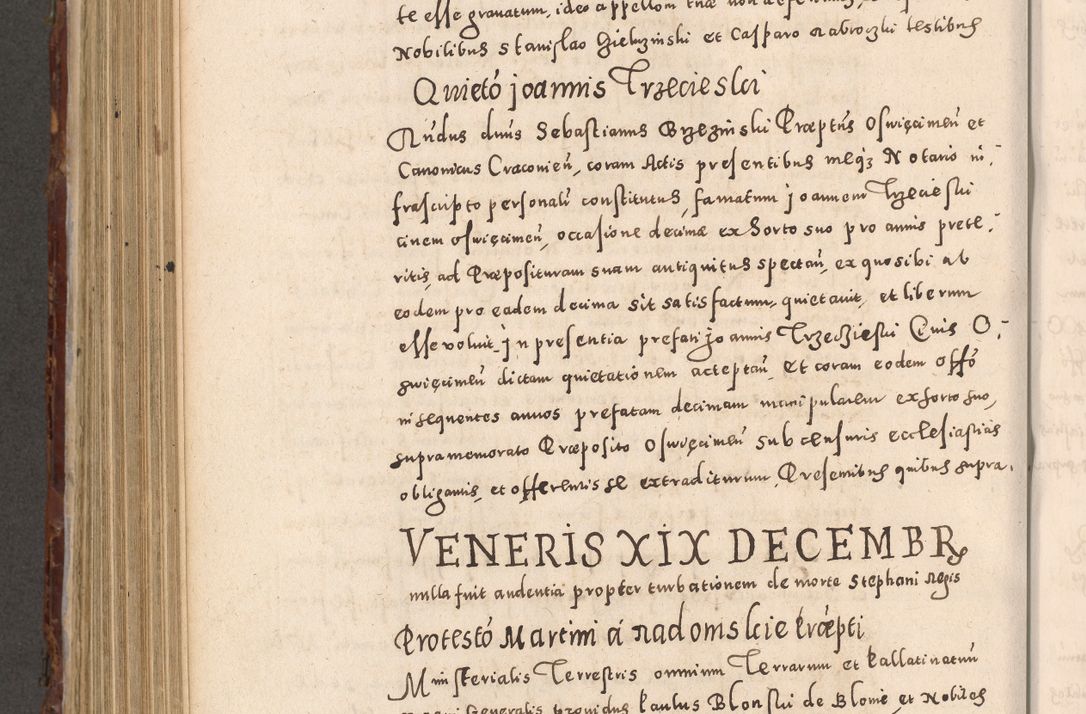 te esse gravatum, ideo appellom tuæ non
Nobilibus Stanislao Gieluzinski et Casparo Nabroczki testibus
Quietó joannis Trzecieski
Rńdus dńus Sebastianus Brzezinski Præptús Oswięcimeń et
Canonicus Cracovień, coram Actis presentibus meqz Notario in,
frascripto personalr constitutus, famatum joannem Trzecieski
civem oswięcimeń, occasione decimæ ex horto suo pro annis prete,
ritis, ad Præposituram suam antiquitus spectań, ex quo sibi ab
eodem pro eadem decima sit satisfactum, quietavit, et liberum
esse voluit, jn presentia prefati joannis Trzeczieski Civis O,
swięcimeń dictam quietationem acceptań, Et coram eodem offó
in sequentes annos prefatam decimam manipularem ex horto suo,
supramemorato Præposito Oswięcimeń sub censuris ecclesiasticis
obligantis, et offerentis se extraditurum, Presentibus quibus supra.
VENERIS XIX DECEMBR
nulla fuit audentia propter turbationem de morte Stephani Regis
Protestó Martini á Radomskie Præpti
Ministerialis Terrestris omnium Terrarum et Pallatinatuū
Regni Generalis providus Paulus Blonski de Blonie, et Nobiles